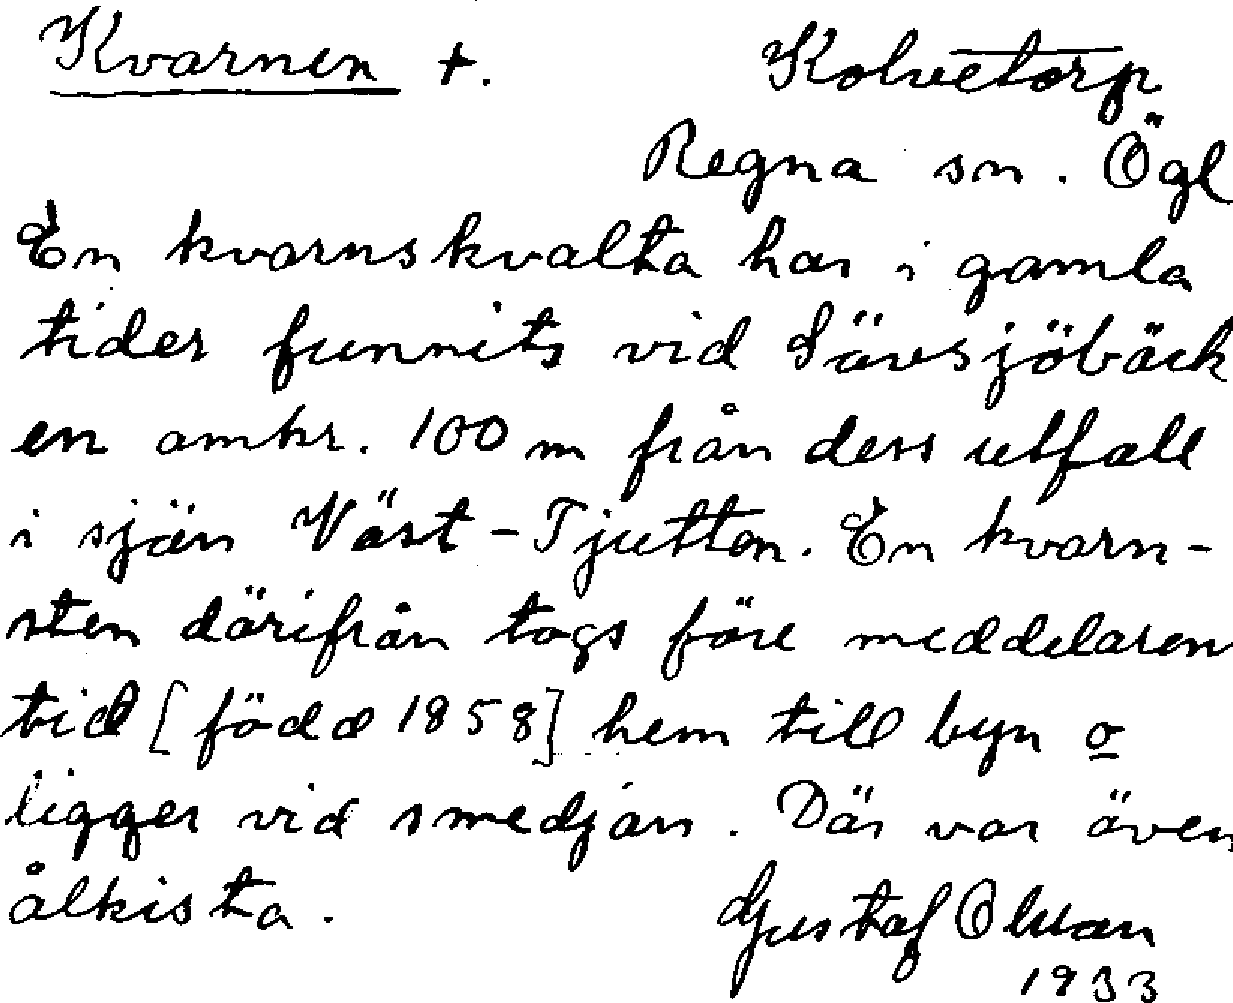 Kvarnen +. Kolvetorp
Regna sn. Ögl
En kvarnskvalta har i gamla
tider funnits vid Sävsjöbäck
en omkr. 100 m från dess utfall
i sjön Väst-Tjutten. En kvarn-
sten därifrån togs före meddelaren
tid [född 1858] hem till byn o
ligger vid smedjan. Där var även
ålkista. Gustaf Olsson
1933